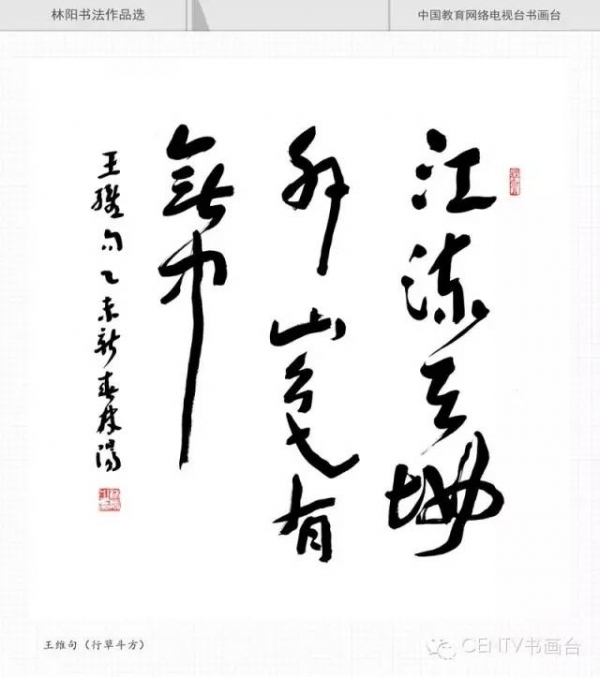 林阳书法作品选
中国教育网络电视台书画台
江流天地
外山色有
無中
王維句乙未新春林陽
王维句（行草斗方）
CENTV书画台